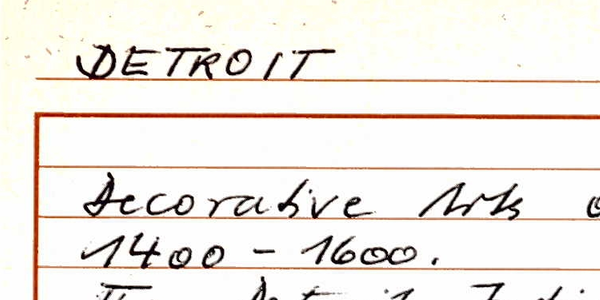 DETROIT
Decorative Arts
1400 - 1600.